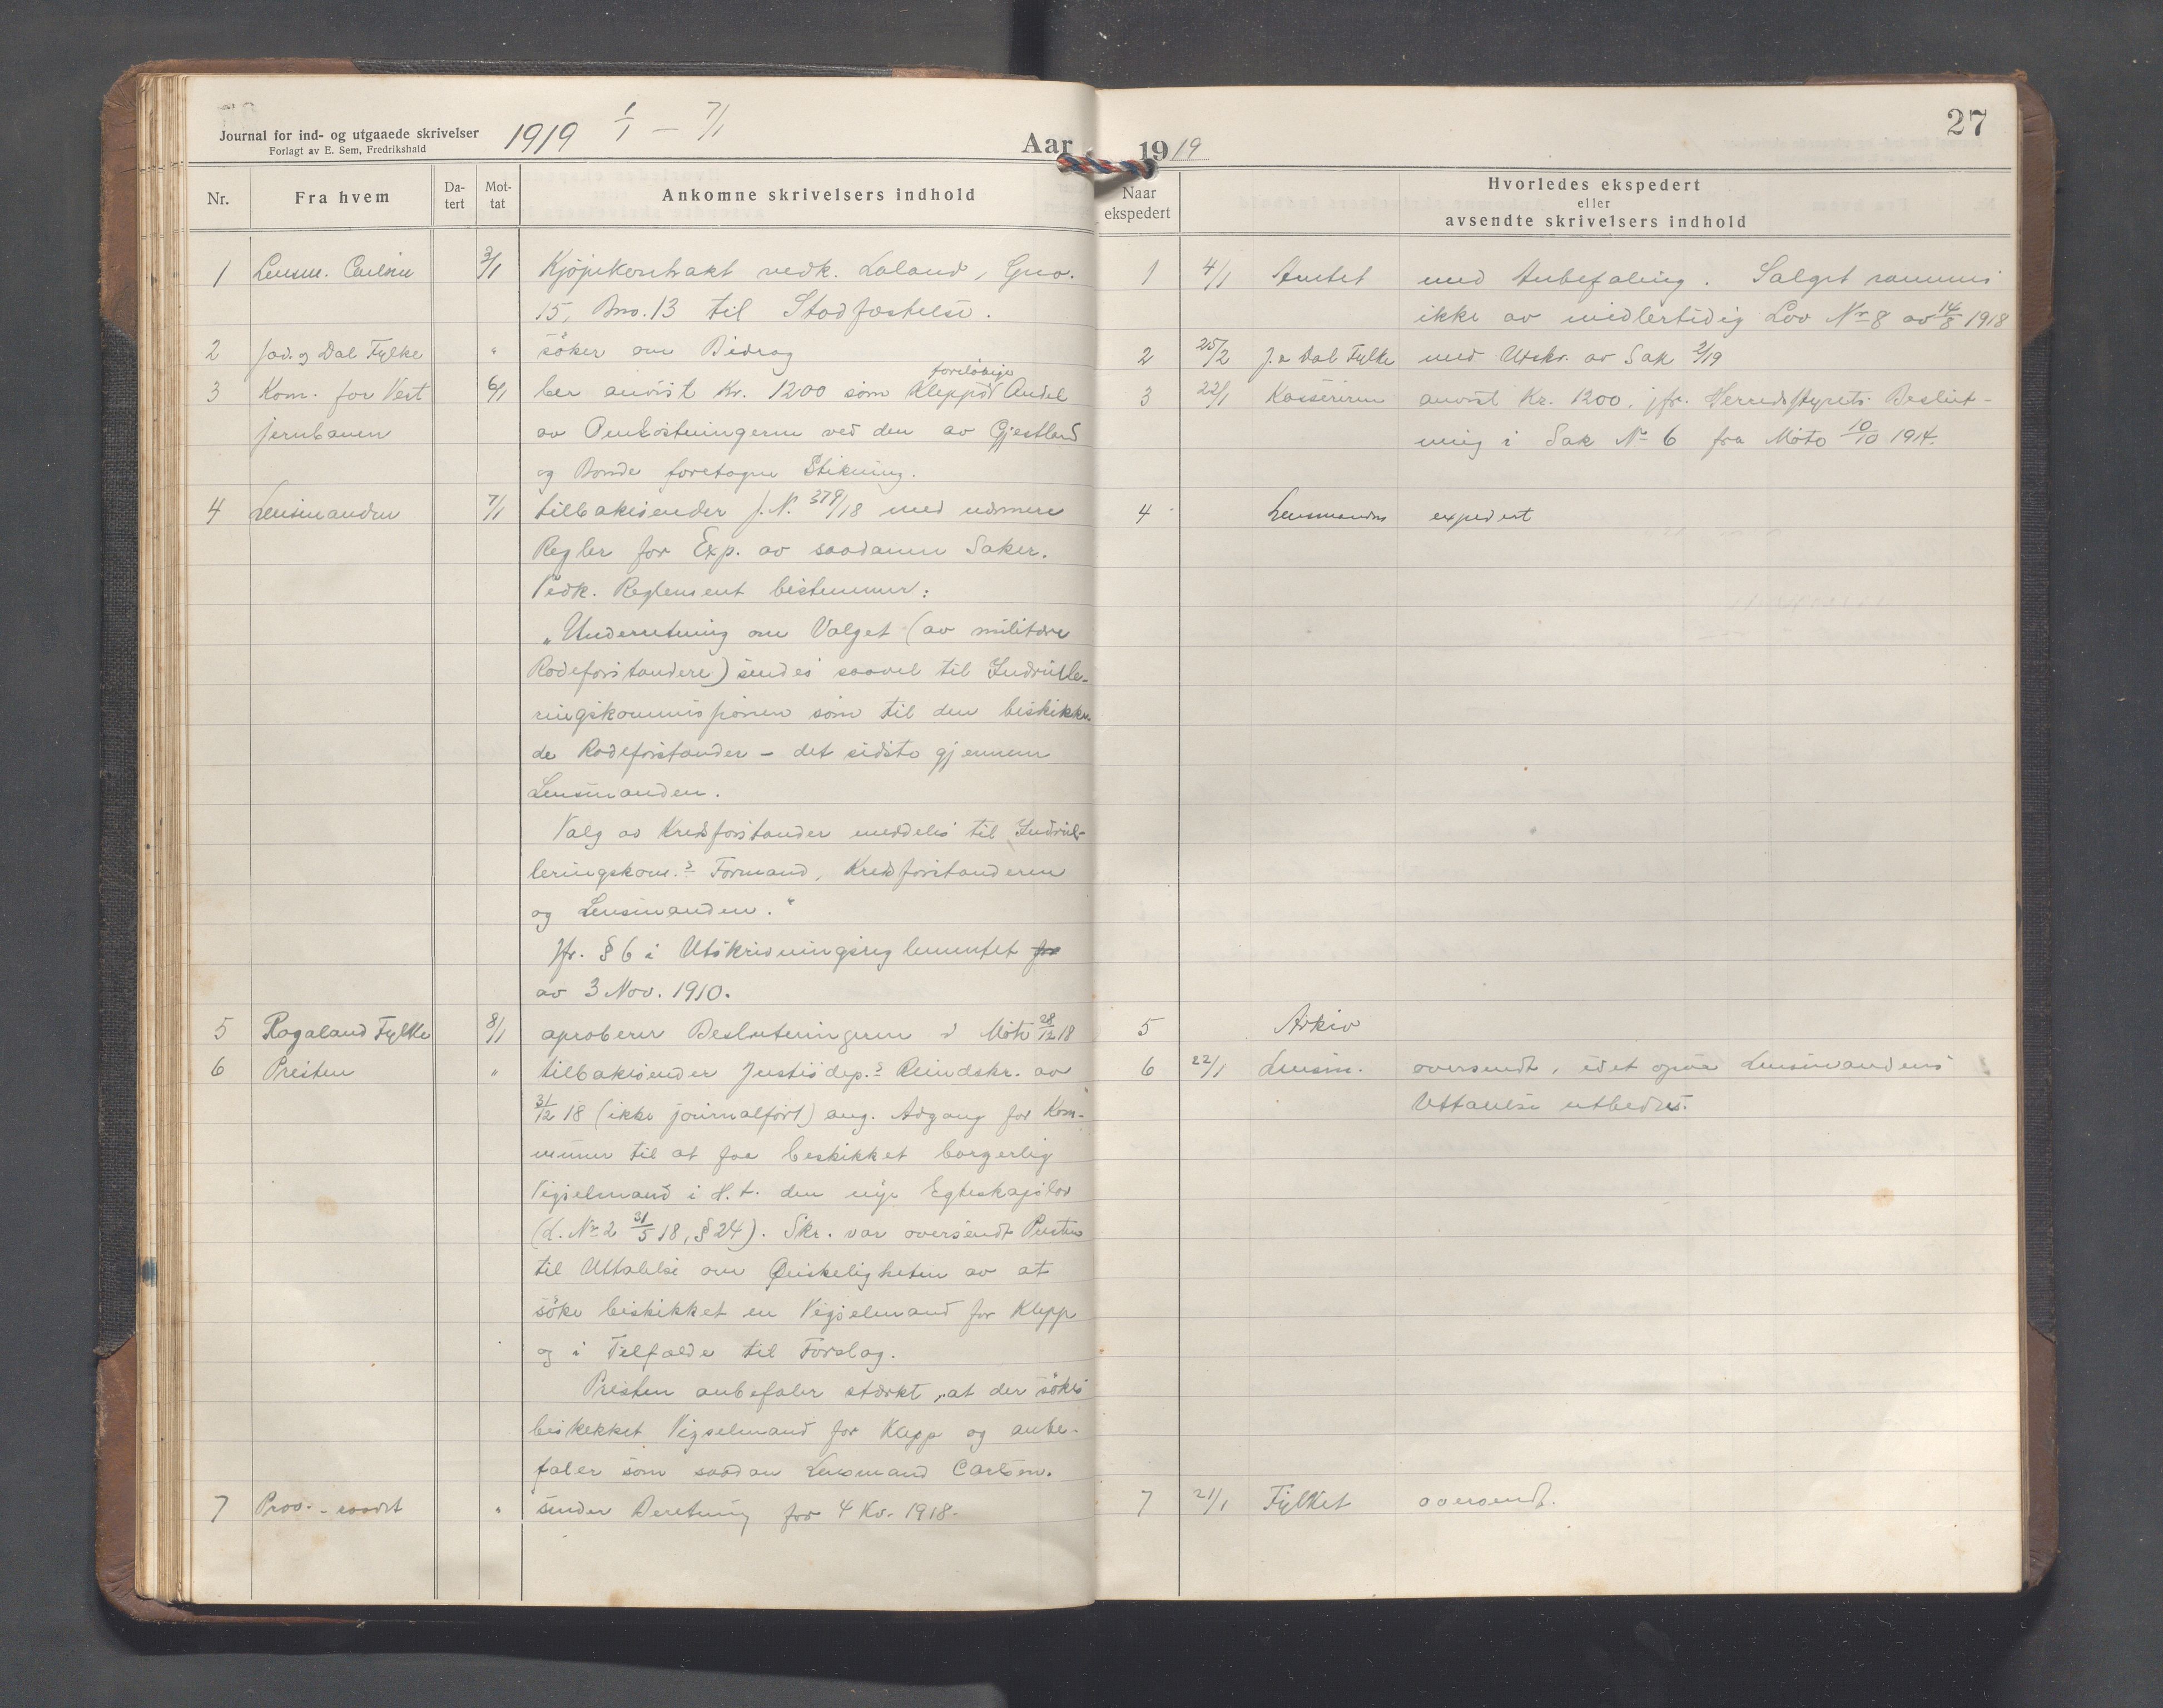 Journal for ind- og utgaaede skrivelser
Forlagt av E. Sem, Fredrikshald
1919 1/1 — 7/1
Aar
Nr.
Fra hvem
Da-
tert
Mot-
tat
Ankomne skrivelsers indhold
1 Lensm. Carlsen 3/1 Kjöpekontrakt vedk. Laland, Gno.
15, Bno. 13 til Stadfæstelse.
2 Jæd. og Dal. Fylke " söker om Bidrag
foreløbige
3 Kom. for Vest 6/1 ber anvist Kr. 1200 som Klepps Andel
jernbanen av Omkostningerne ved den av Gjestland
og Bonde foretagne Stikning.
4 Lensmanden 7/1 tilbakesender J.N. 379/18 med nærmere
Regler for Exp. av saadanne Saker.
Vedk. Reglement bestemmer:
„Underretning om Valget (av militære
Rodeforstandere) sendes saavel til Indrulle-
ringskommissionen som til den beskikke-
de Rodeforstander – det sidste gjennem
Lensmanden.
Valg av Kredsforstander meddeles til Indrul-
leringskom.s Formand, Kredsforstanderen
og Lensmanden."
Jfr. § 6 i Utskrivningsreglementet for
av 3 Nov. 1910.
5 Rogaland Fylke 8/1 aproberer Beslutningerne i Möte 28/12 18
6 Presten " tilbakesender Justisdep.s Rundskr. av
31/12 18 (ikke journalfört) ang. Adgang for Kom-
muner til at faa beskikket borgerlig
Vigselmand i H.t. den nye Egteskapslov
(L. No 2 31/5 18, § 24). Skr. var oversendt Presten
til Uttalelse om Ønskeligheten av at
söke beskikket en Vigselmand for Klepp
og i Tilfælde til Forslag.
Presten anbefaler stærkt, at der sökes
beskikket Vigselmand for Klepp og anbe-
faler som saadan Lensmand Carlsen.
7 Prov.-raadet " sender Beretning for 4 Kv. 1918.
1919
27
Naar
ekspedert
Hvorledes ekspedert
eller
avsendte skrivelsers indhold
1 4/1 Amtet med Anbefaling. Salget rammes
ikke av midlertidig Lov No 8 av 14/8 1918
2 25/2 J. & Dal. Fylke med Utskr. av Sak 2/19
3 22/1 Kassereren anvist Kr. 1200, jfr. Herredsstyrets Beslut-
ning i Sak No 6 fra Möte 10/10 1914.
4 Lensmanden expedert
5 Arkiv
6 22/1 Lensm. oversendt, idet Lensmandens
Uttalelse utbedes.
7 21/1 Fylket oversendt.